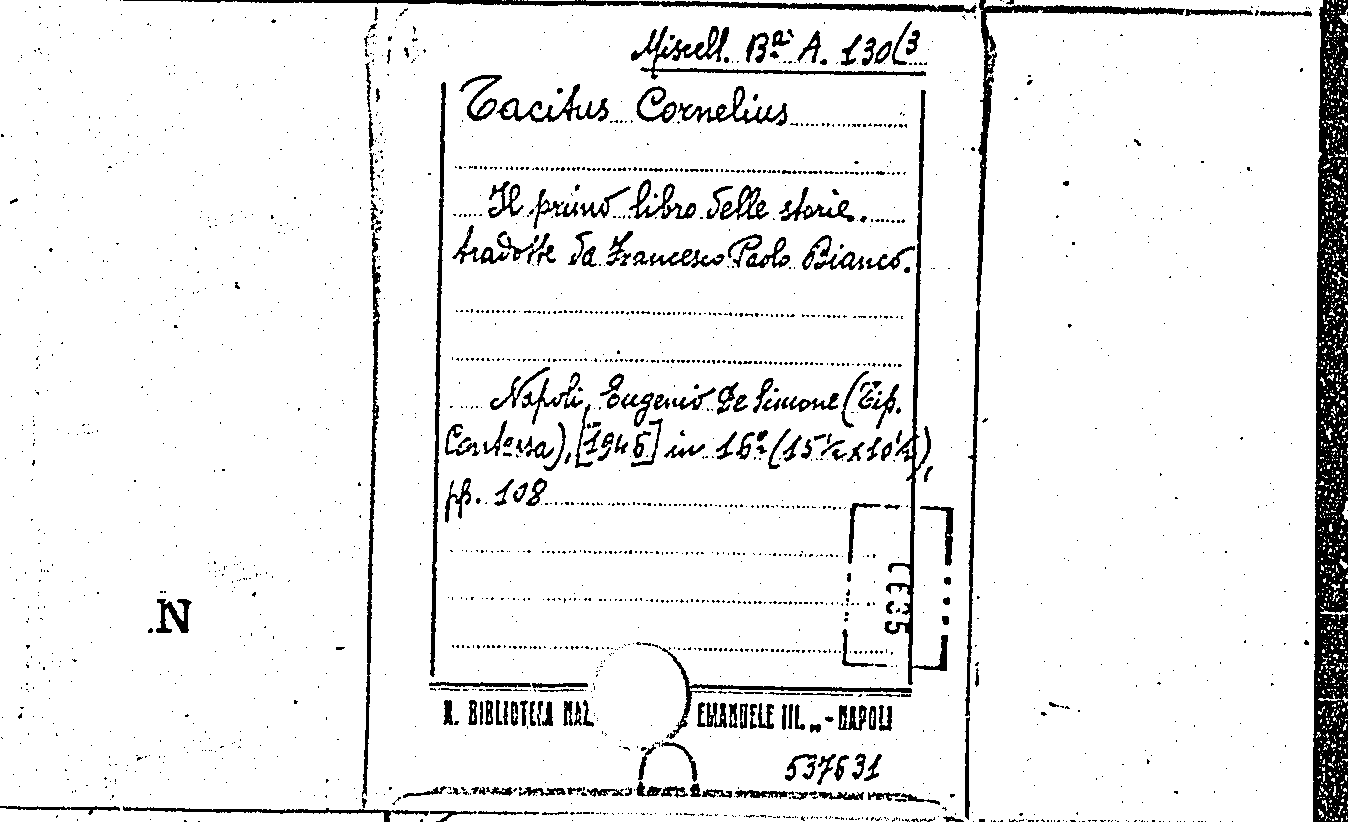 Miscell. Bª A. 130(3
Tacitus Cornelius
Il primo libro delle storie.
tradotte da Francesco Paolo Bianco.
Napoli, Eugenio De Simone (Tip.
Contessa), [1946] in 16° (15½x10½),
pp. 108
N
N. BIBLIOTECA NAZ. EMANUELE III. „ - NAPOLI
537631